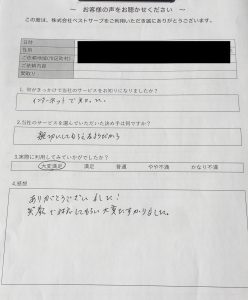 ～ お客様の声をお聞かせください ～
この度は、株式会社ベストサーブをご利用いただき誠にありがとうございます。
日時
性別
ご依頼地域(市区町村)
ご依頼内容
買取り
1. 何がきっかけで当社のサービスをお知りになりましたか？
インターネットで見て。
2.当社のサービスを選んでいただいた決め手は何ですか？
親切にしてもらえるようだから
3.実際に利用してみていかがでしたか？
大変満足 満足 普通 やや不満 かなり不満
4.感想
ありがとうございました！
笑顔で対応してもらい大変たすかりました。